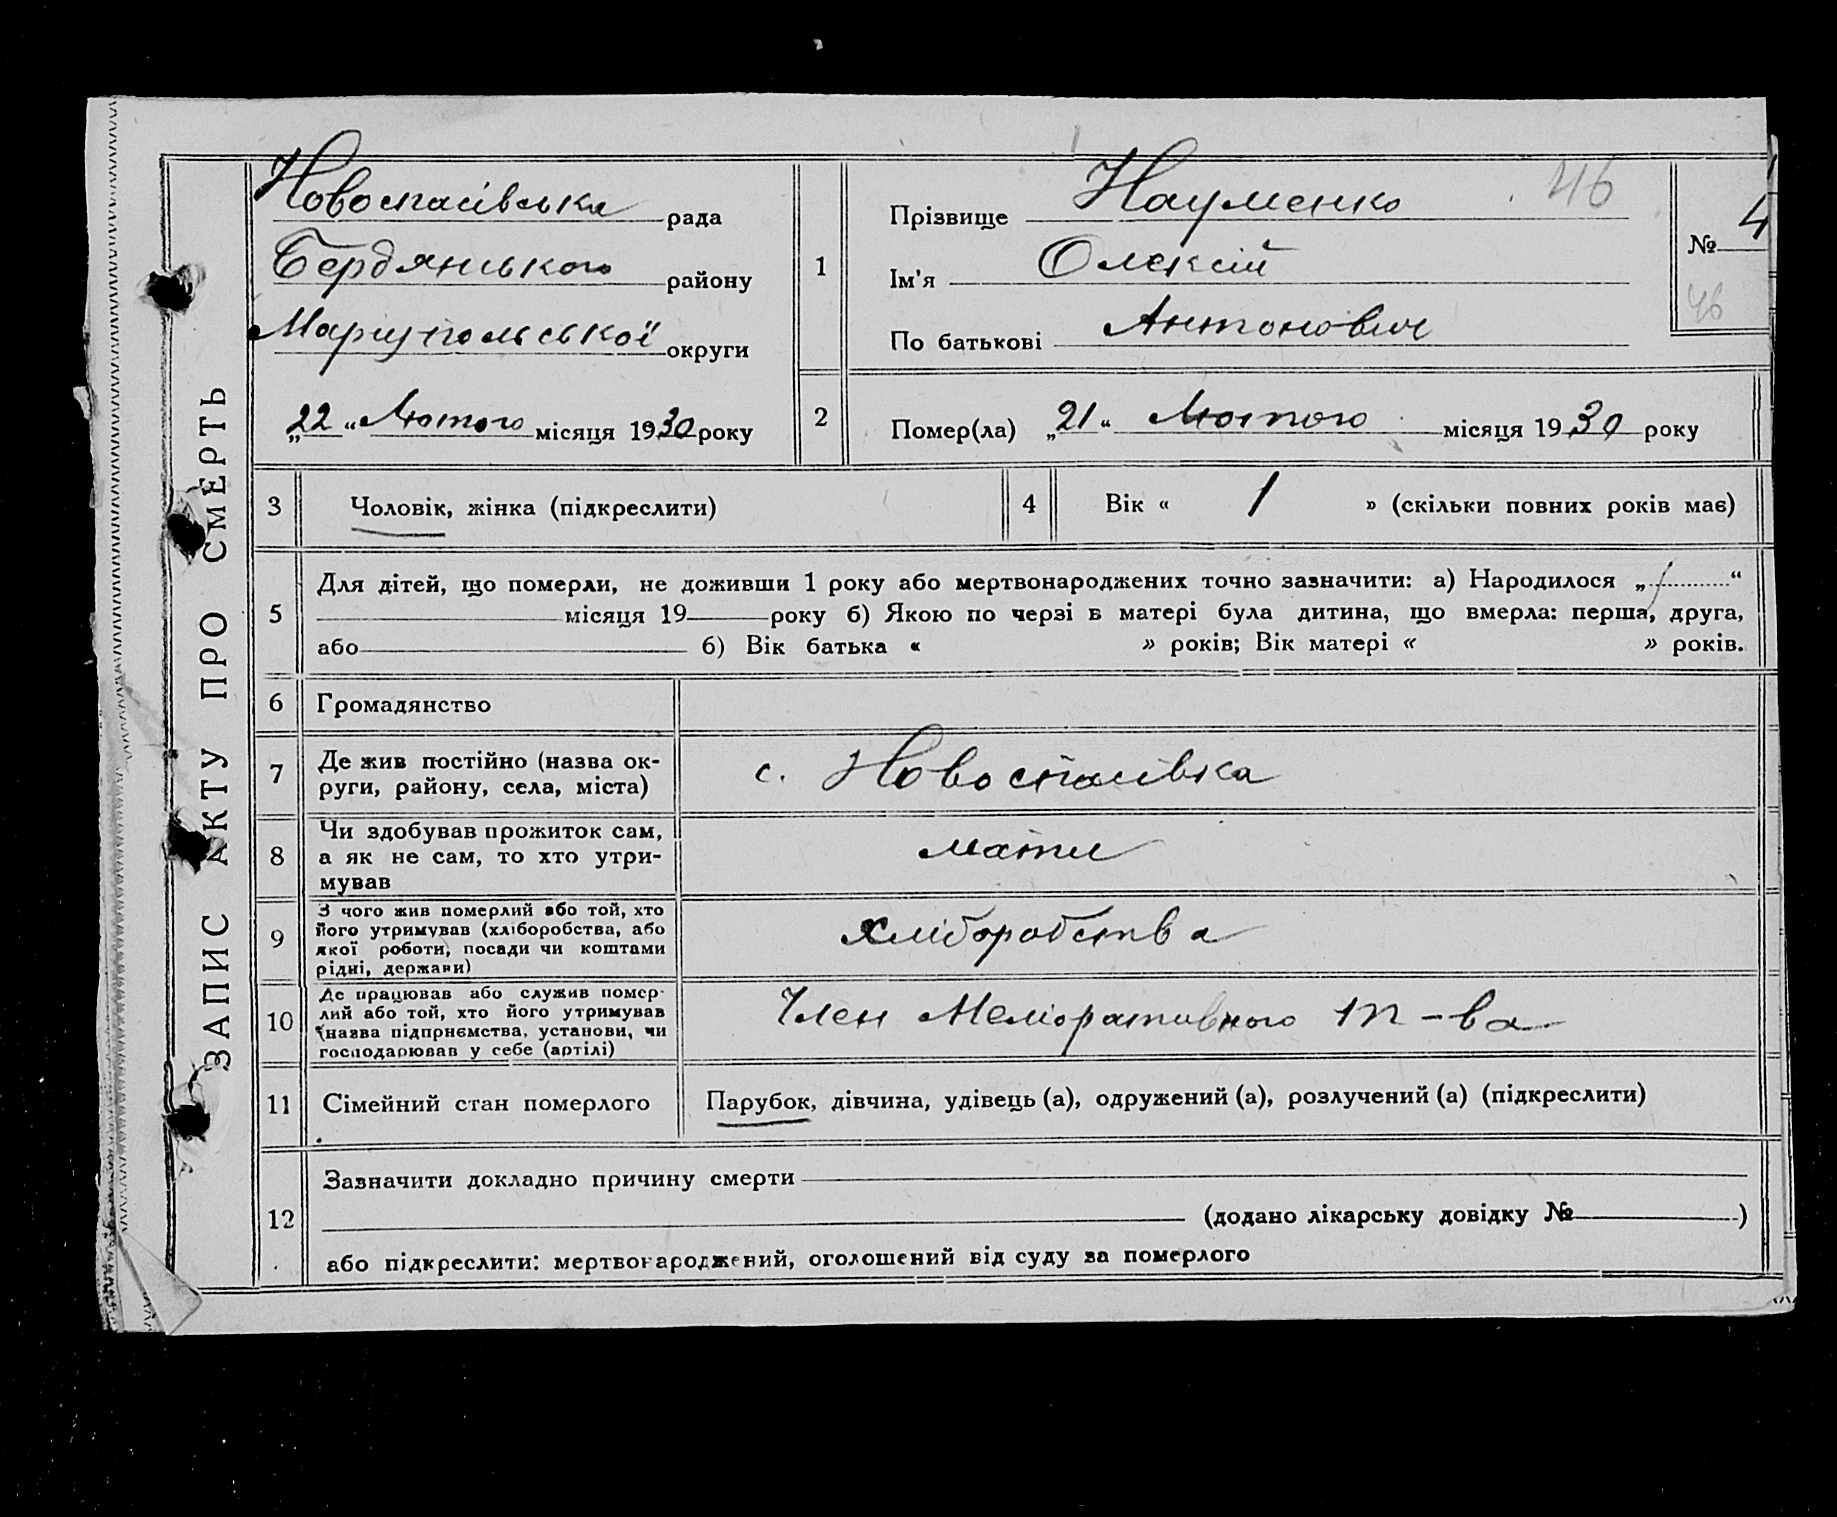 ЗАПИС АКТУ ПРО СМЕРТЬ
Новоспасівська рада
Бердянського району
Маріупольської округи
„22“ Лютого місяця 1930 року
1
Прізвище Науменко 46
Ім'я Олексій
По батькові Антонович
№ 4
46
2
Помер(ла) „21“ Лютого місяця 1930 року
3 Чоловік, жінка (підкреслити)
4 Вік « 1 » (скільки повних років має)
5
Для дітей, що померли, не доживши 1 року або мертвонароджених точно зазначити: а) Народилося „ “
місяця 19 року б) Якою по черзі в матері була дитина, що вмерла: перша, друга,
або б) Вік батька « » років; Вік матері « » років.
6 Громадянство
7
Де жив постійно (назва ок-
руги, району, села, міста)
с. Новоспасівка
8
Чи здобував прожиток сам,
а як не сам, то хто утри-
мував
мати
9
З чого жив померлий або той, хто
його утримував (хліборобства, або
якої роботи, посади чи коштами
рідні, держави)
хліборобства
10
Де працював або служив помер-
лий або той, хто його утримував
(назва підприємства, установи, чи
господарював у себе (артілі)
Член Меліоративного т-ва
11 Сімейний стан померлого
Парубок, дівчина, удівець (а), одружений (а), розлучений (а) (підкреслити)
12
Зазначити докладно причину смерти
(додано лікарську довідку № )
або підкреслити: мертвонароджений, оголошений від суду за померлого